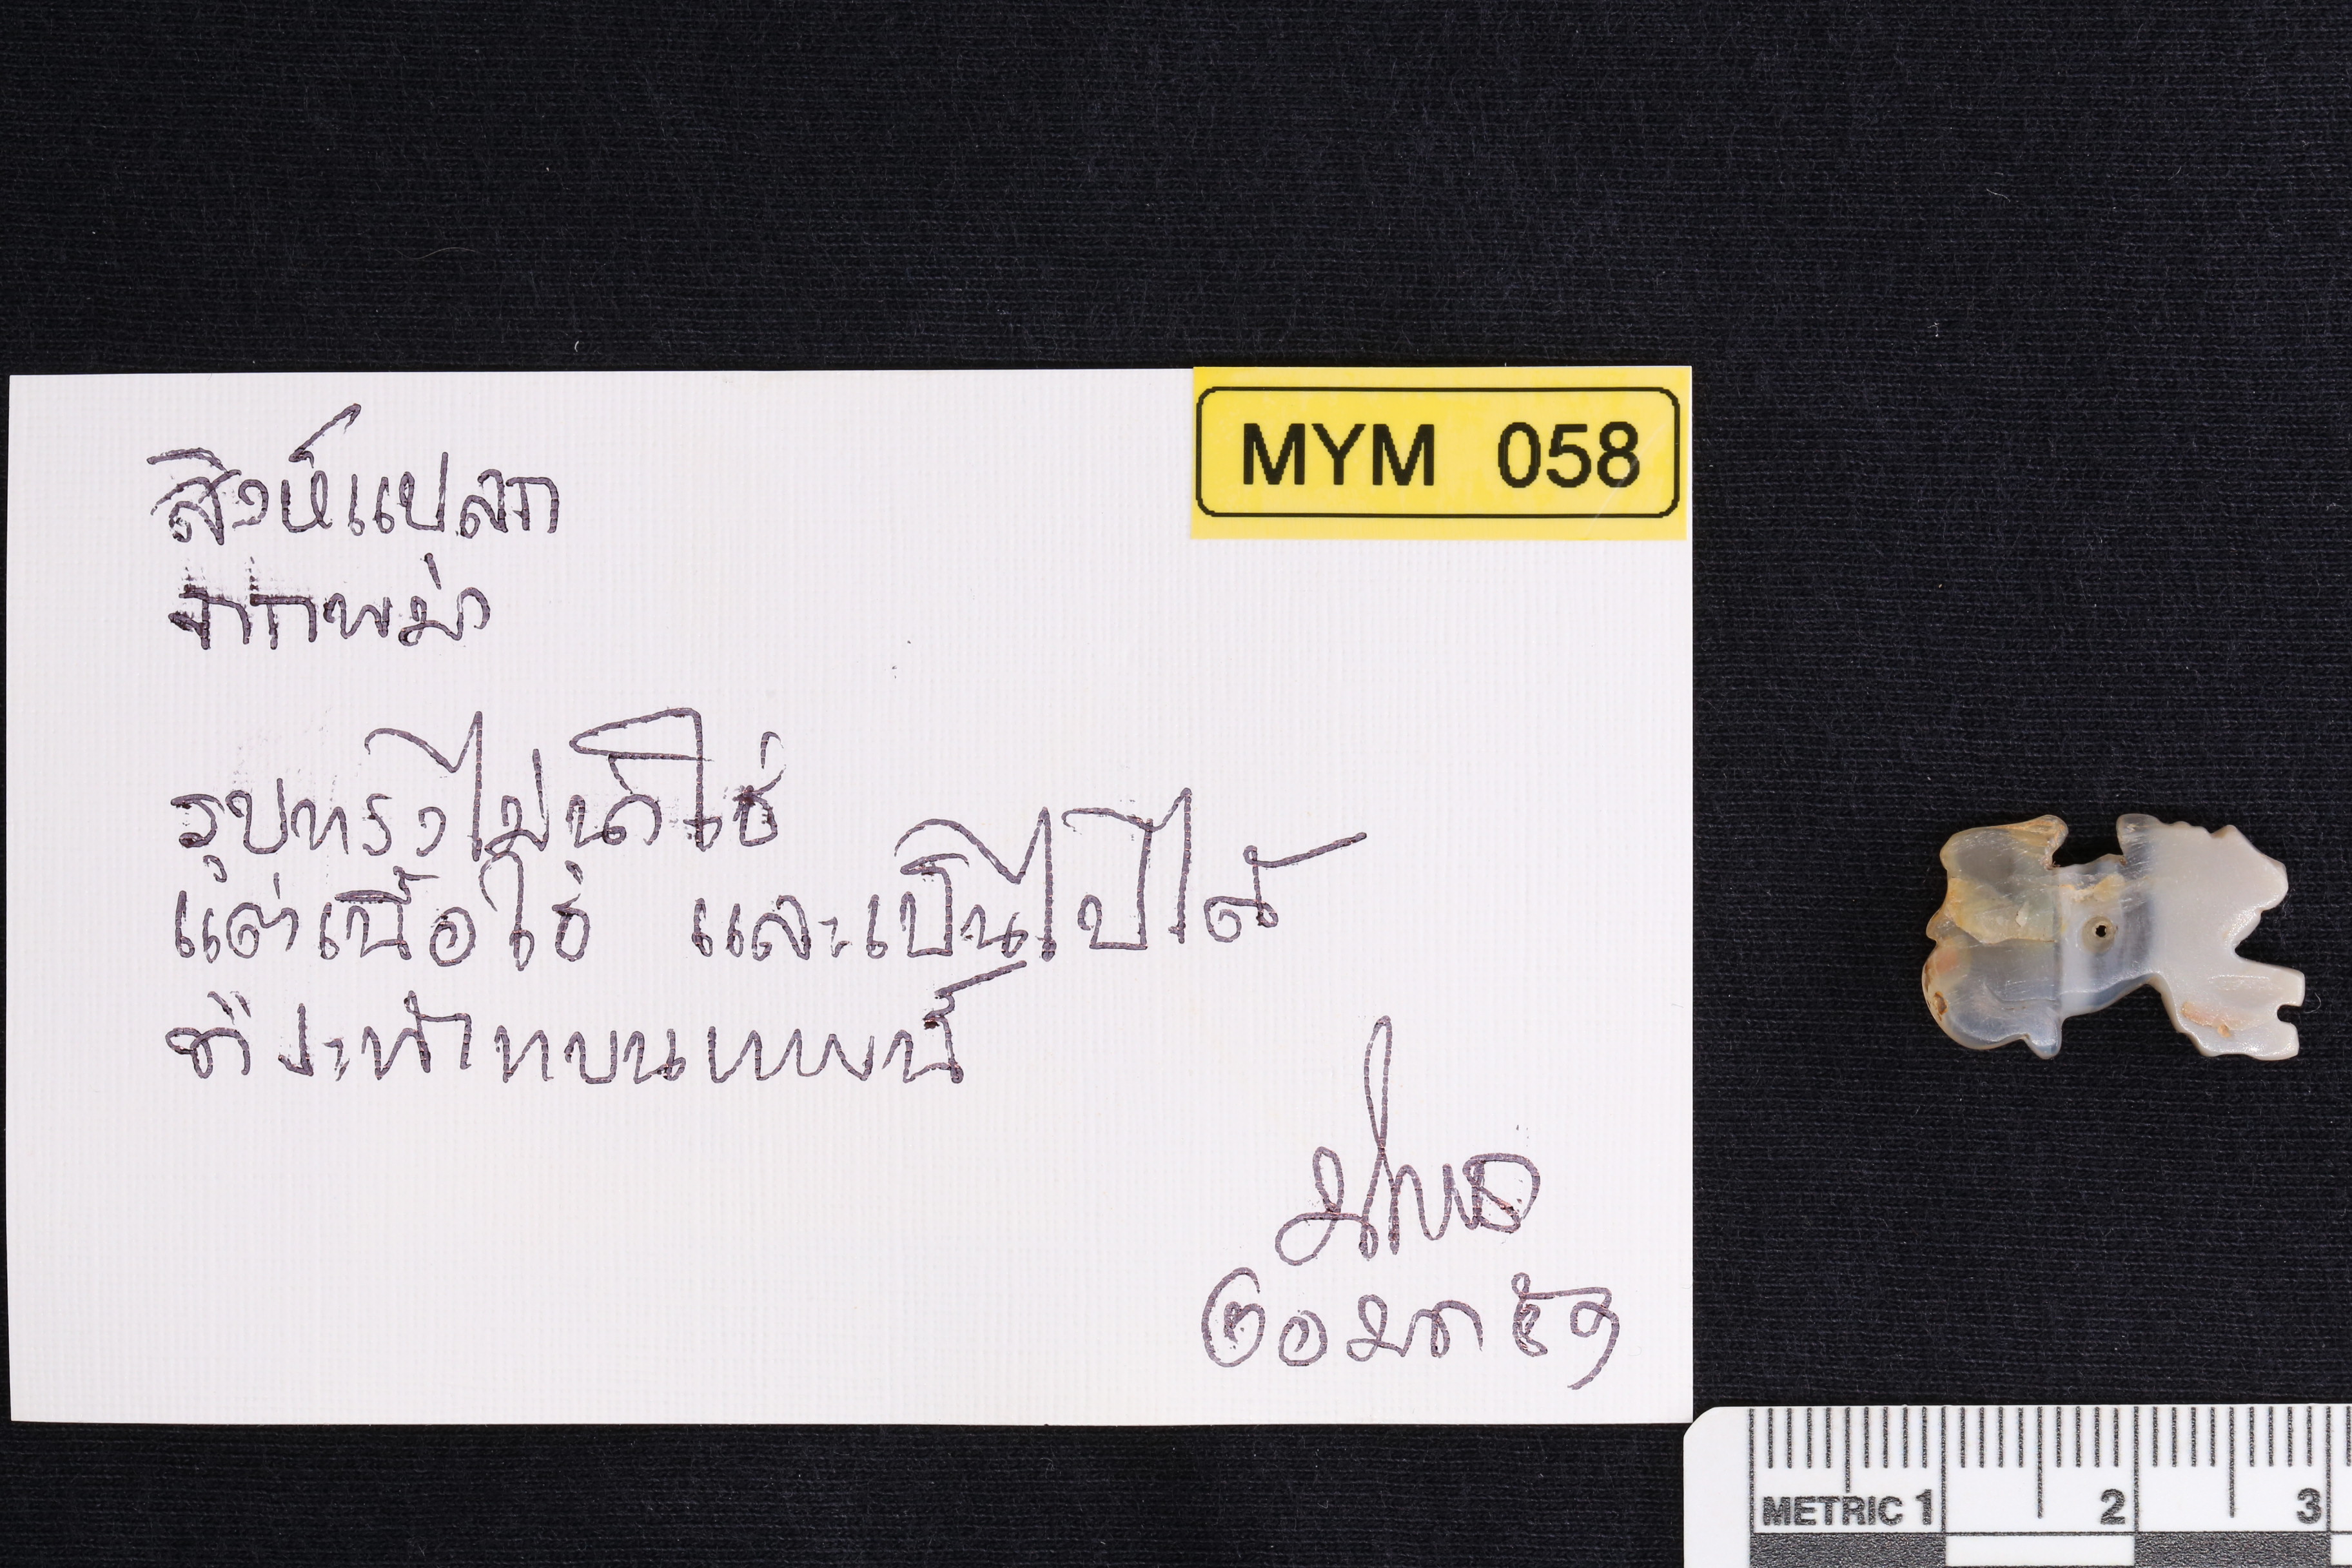 MYM 058
สิงห์แปลก
จากพม่า
รูปทรงไม่น่าใช่
แต่เนื้อใช่ และเป็นไปได้
ที่จะทำ
๒๐ มค ๕๑
METRIC 1 2 3